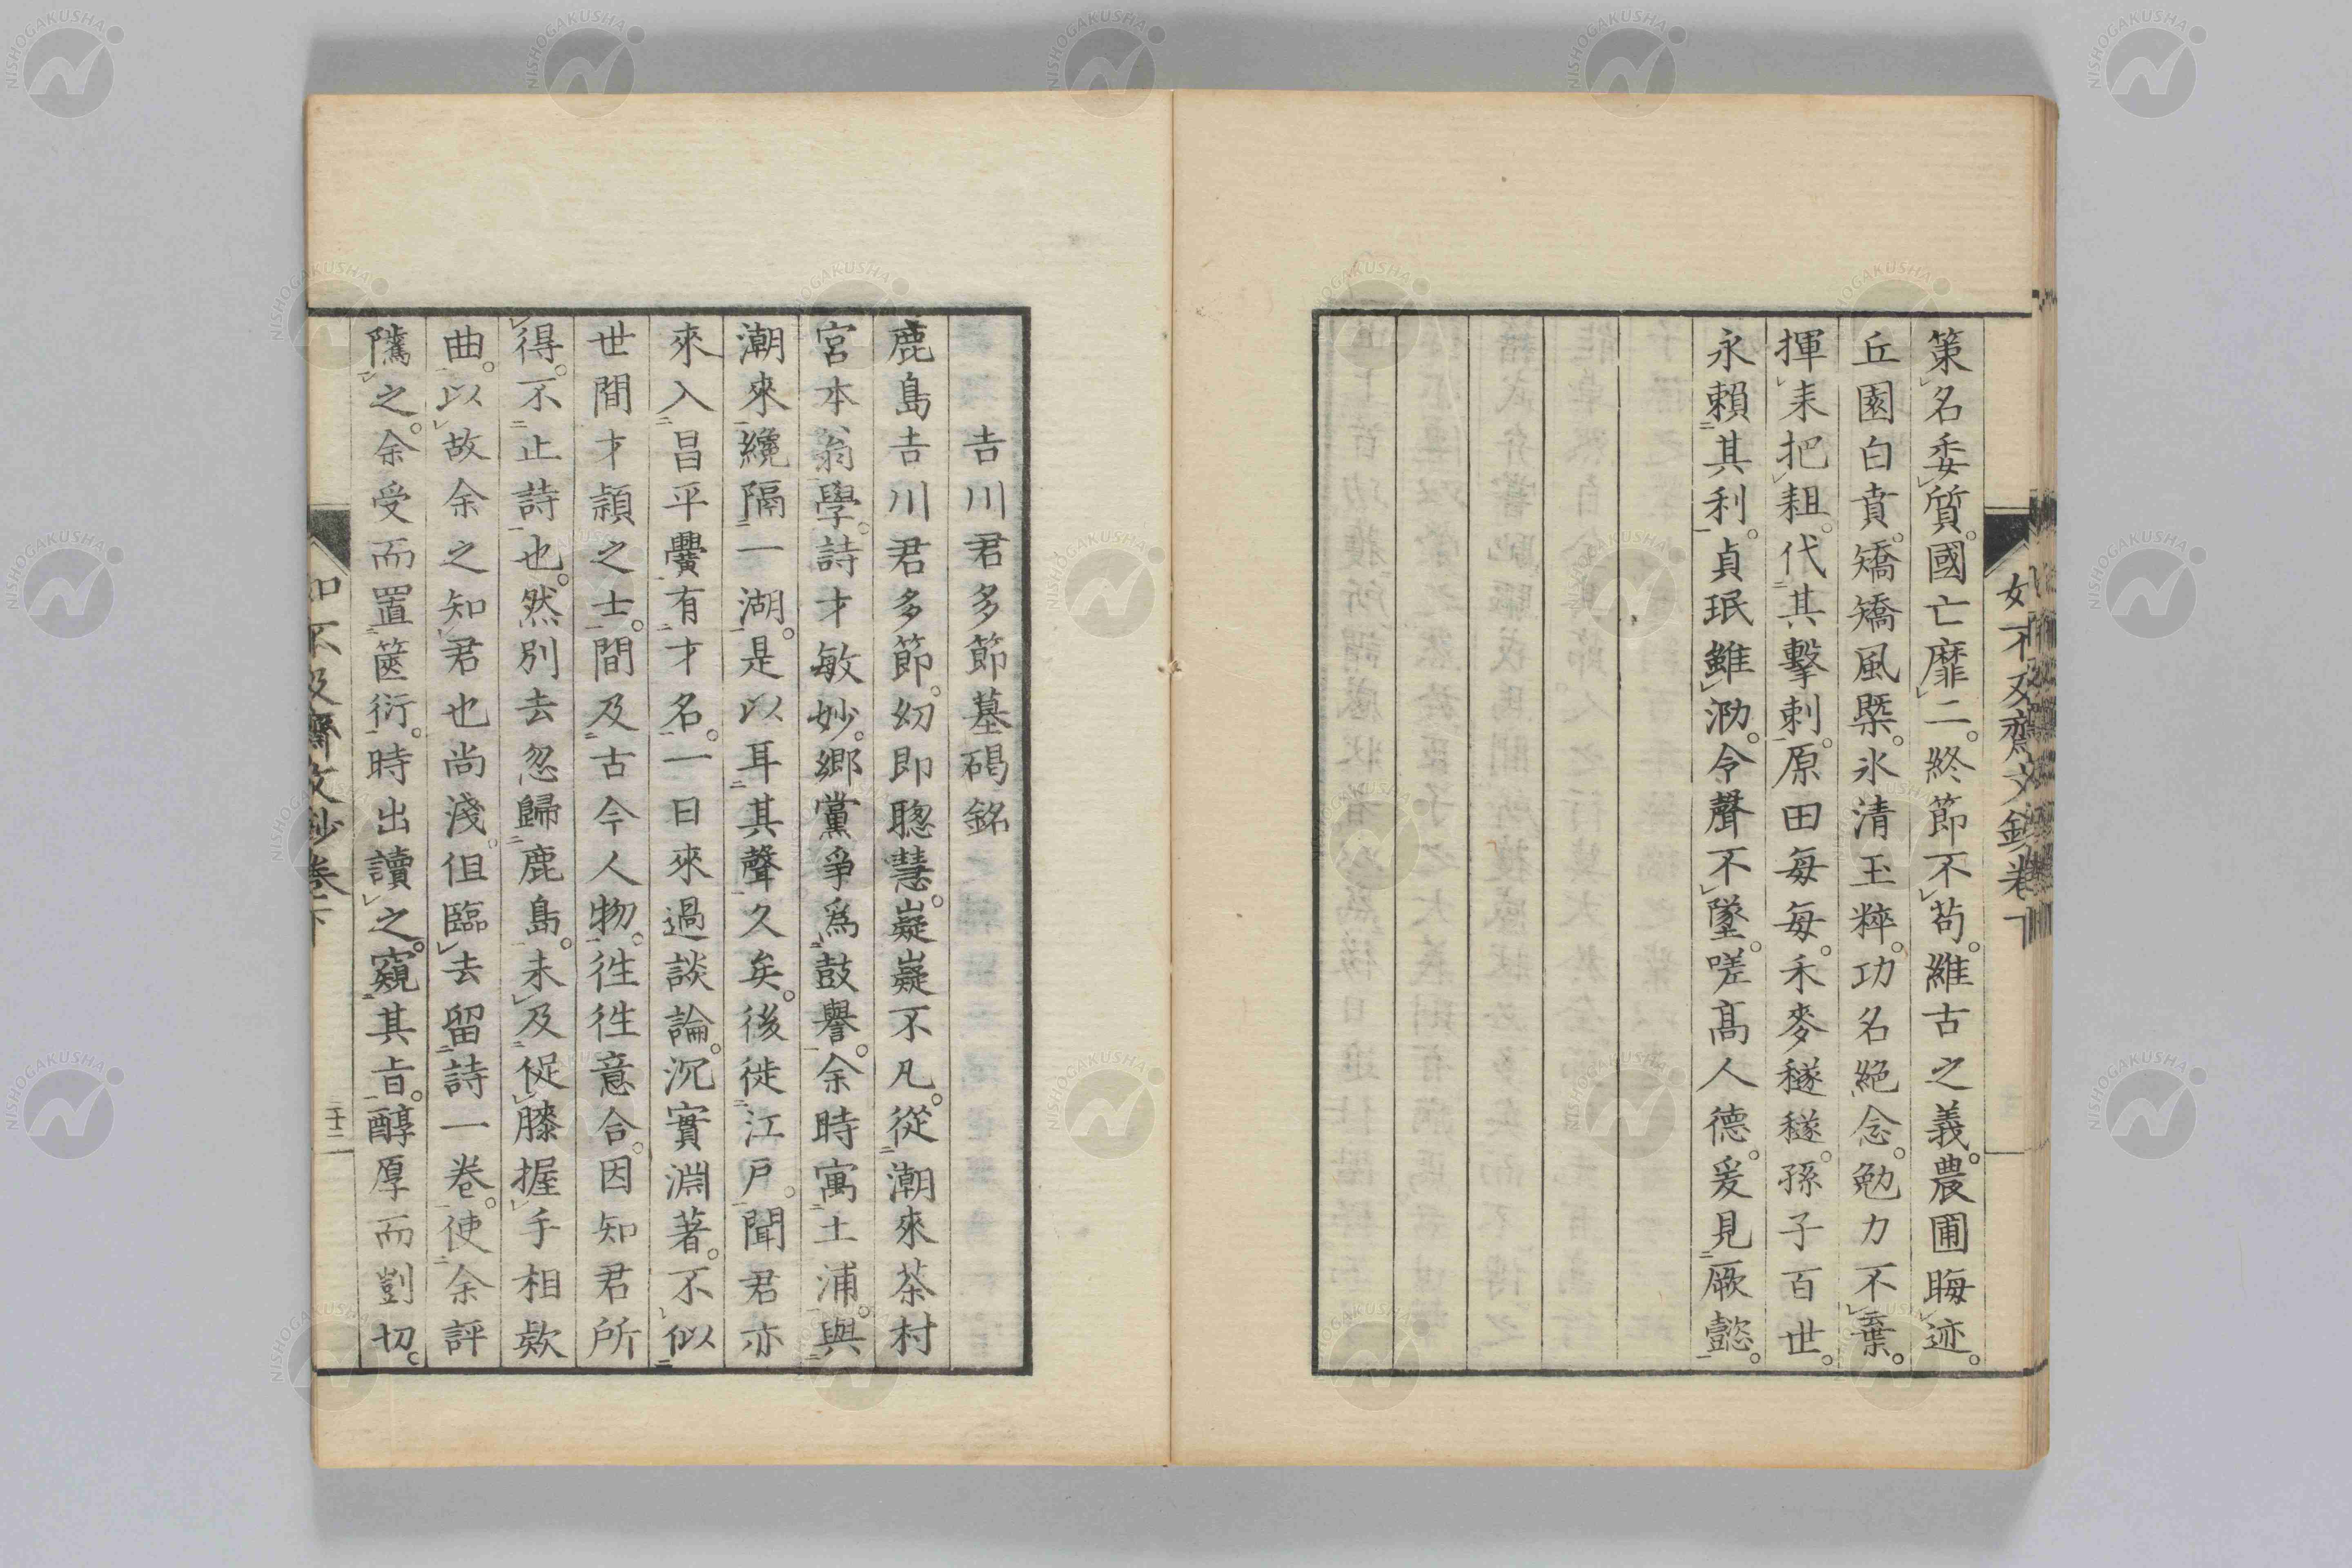 策名委質。國亡靡二。終節不苟。維古之義。農圃晦迹。
丘園白賁。矯矯風槩。氷清玉粹。功名絶念。勉力不葉。
揮耒把耝。代其擊刺。原田每每。禾麥穟穟。孫子百世。
永賴其利。貞珉雖泐。令聲不墜。嗟高人德。爰見厥懿。
如不及齋文鈔卷下
吉川君多節墓碣銘
鹿島吉川君多節。幼即聰慧。嶷嶷不凡。從潮來茶村
宮本翁學。詩才敏妙。鄉黨爭爲鼓譽。余時寓土浦。與
潮來纔隔一湖。是以耳其聲久矣。後徙江戶。聞君亦
來入昌平黌有才名。一日來過談論。沉實淵著。不似
世間才穎之士。間及古今人物。徃徃意合。因知君所
得。不止詩也。然別去忽歸鹿島。未及促膝握手相欵
曲。以故余之知君也尚淺。但臨去留詩一卷。使余評
隲之。余受而置篋衍。時出讀之。窺其旨。醇厚而剴切。
如不及齋文鈔卷下
三十二
NISHOGAKUSHA